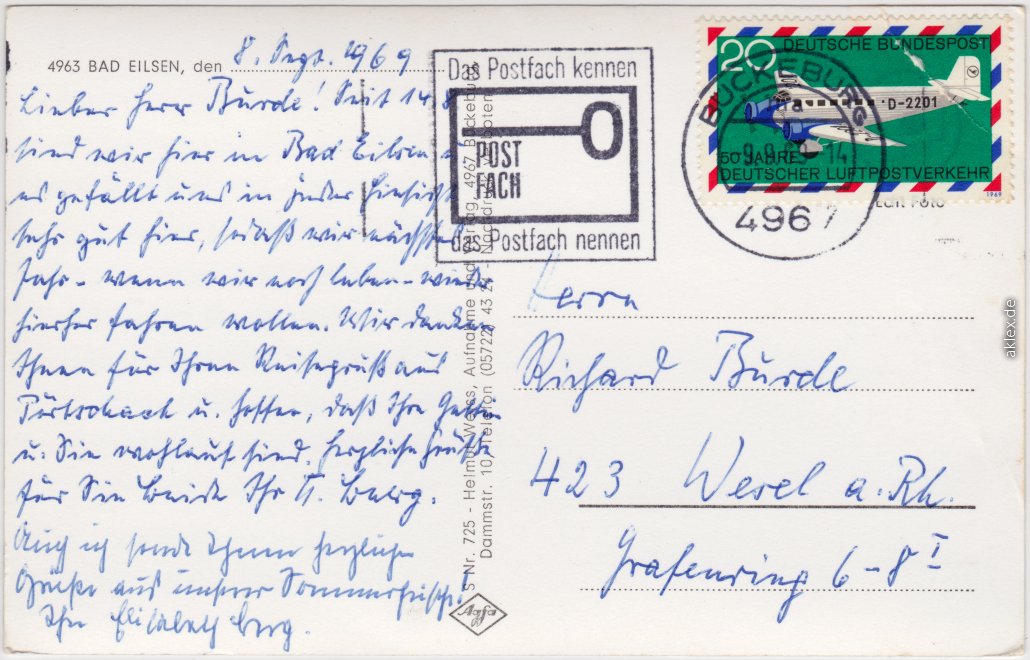 4963 BAD EILSEN, den 8. Sept. 1969
Lieber Herr Burde! Seit 14.8.
sind wir hier in Bad Eilsen u.
es gefällt uns in jeder Hinsicht
sehr gut hier, sodaß wir nächstes
Jahr - wenn wir noch leben - wieder
hierher fahren wollen. Wir danken
Ihnen für Ihren Reisegruß aus
Pörtschach u. hoffen, daß Ihre Gattin
u. Sie wohlauf sind. Herzliche Grüße
für Sie beide Ihr H. Berg.
Auch ich sende Ihnen herzliche
Grüße aus unserer Sommerfrische.
Ihre Elisabeth Berg.
S Nr. 725 - Helmut Weiss, Aufnahme und Verlag, 4967 Bückeburg
Dammstr. 10, Telefon (05722) 43 24 - Nachdruck verboten
Agfa
Das Postfach kennen
POST
FACH
das Postfach nennen
BÜCKEBURG
a
9.9.69-14
4967
20 DEUTSCHE BUNDESPOST
D-2201
50 JAHRE
DEUTSCHER LUFTPOSTVERKEHR
1969
Echt Foto
Herrn
Richard Burde
423 Wesel a. Rh.
Grafenring 6-8 I
aklex.de